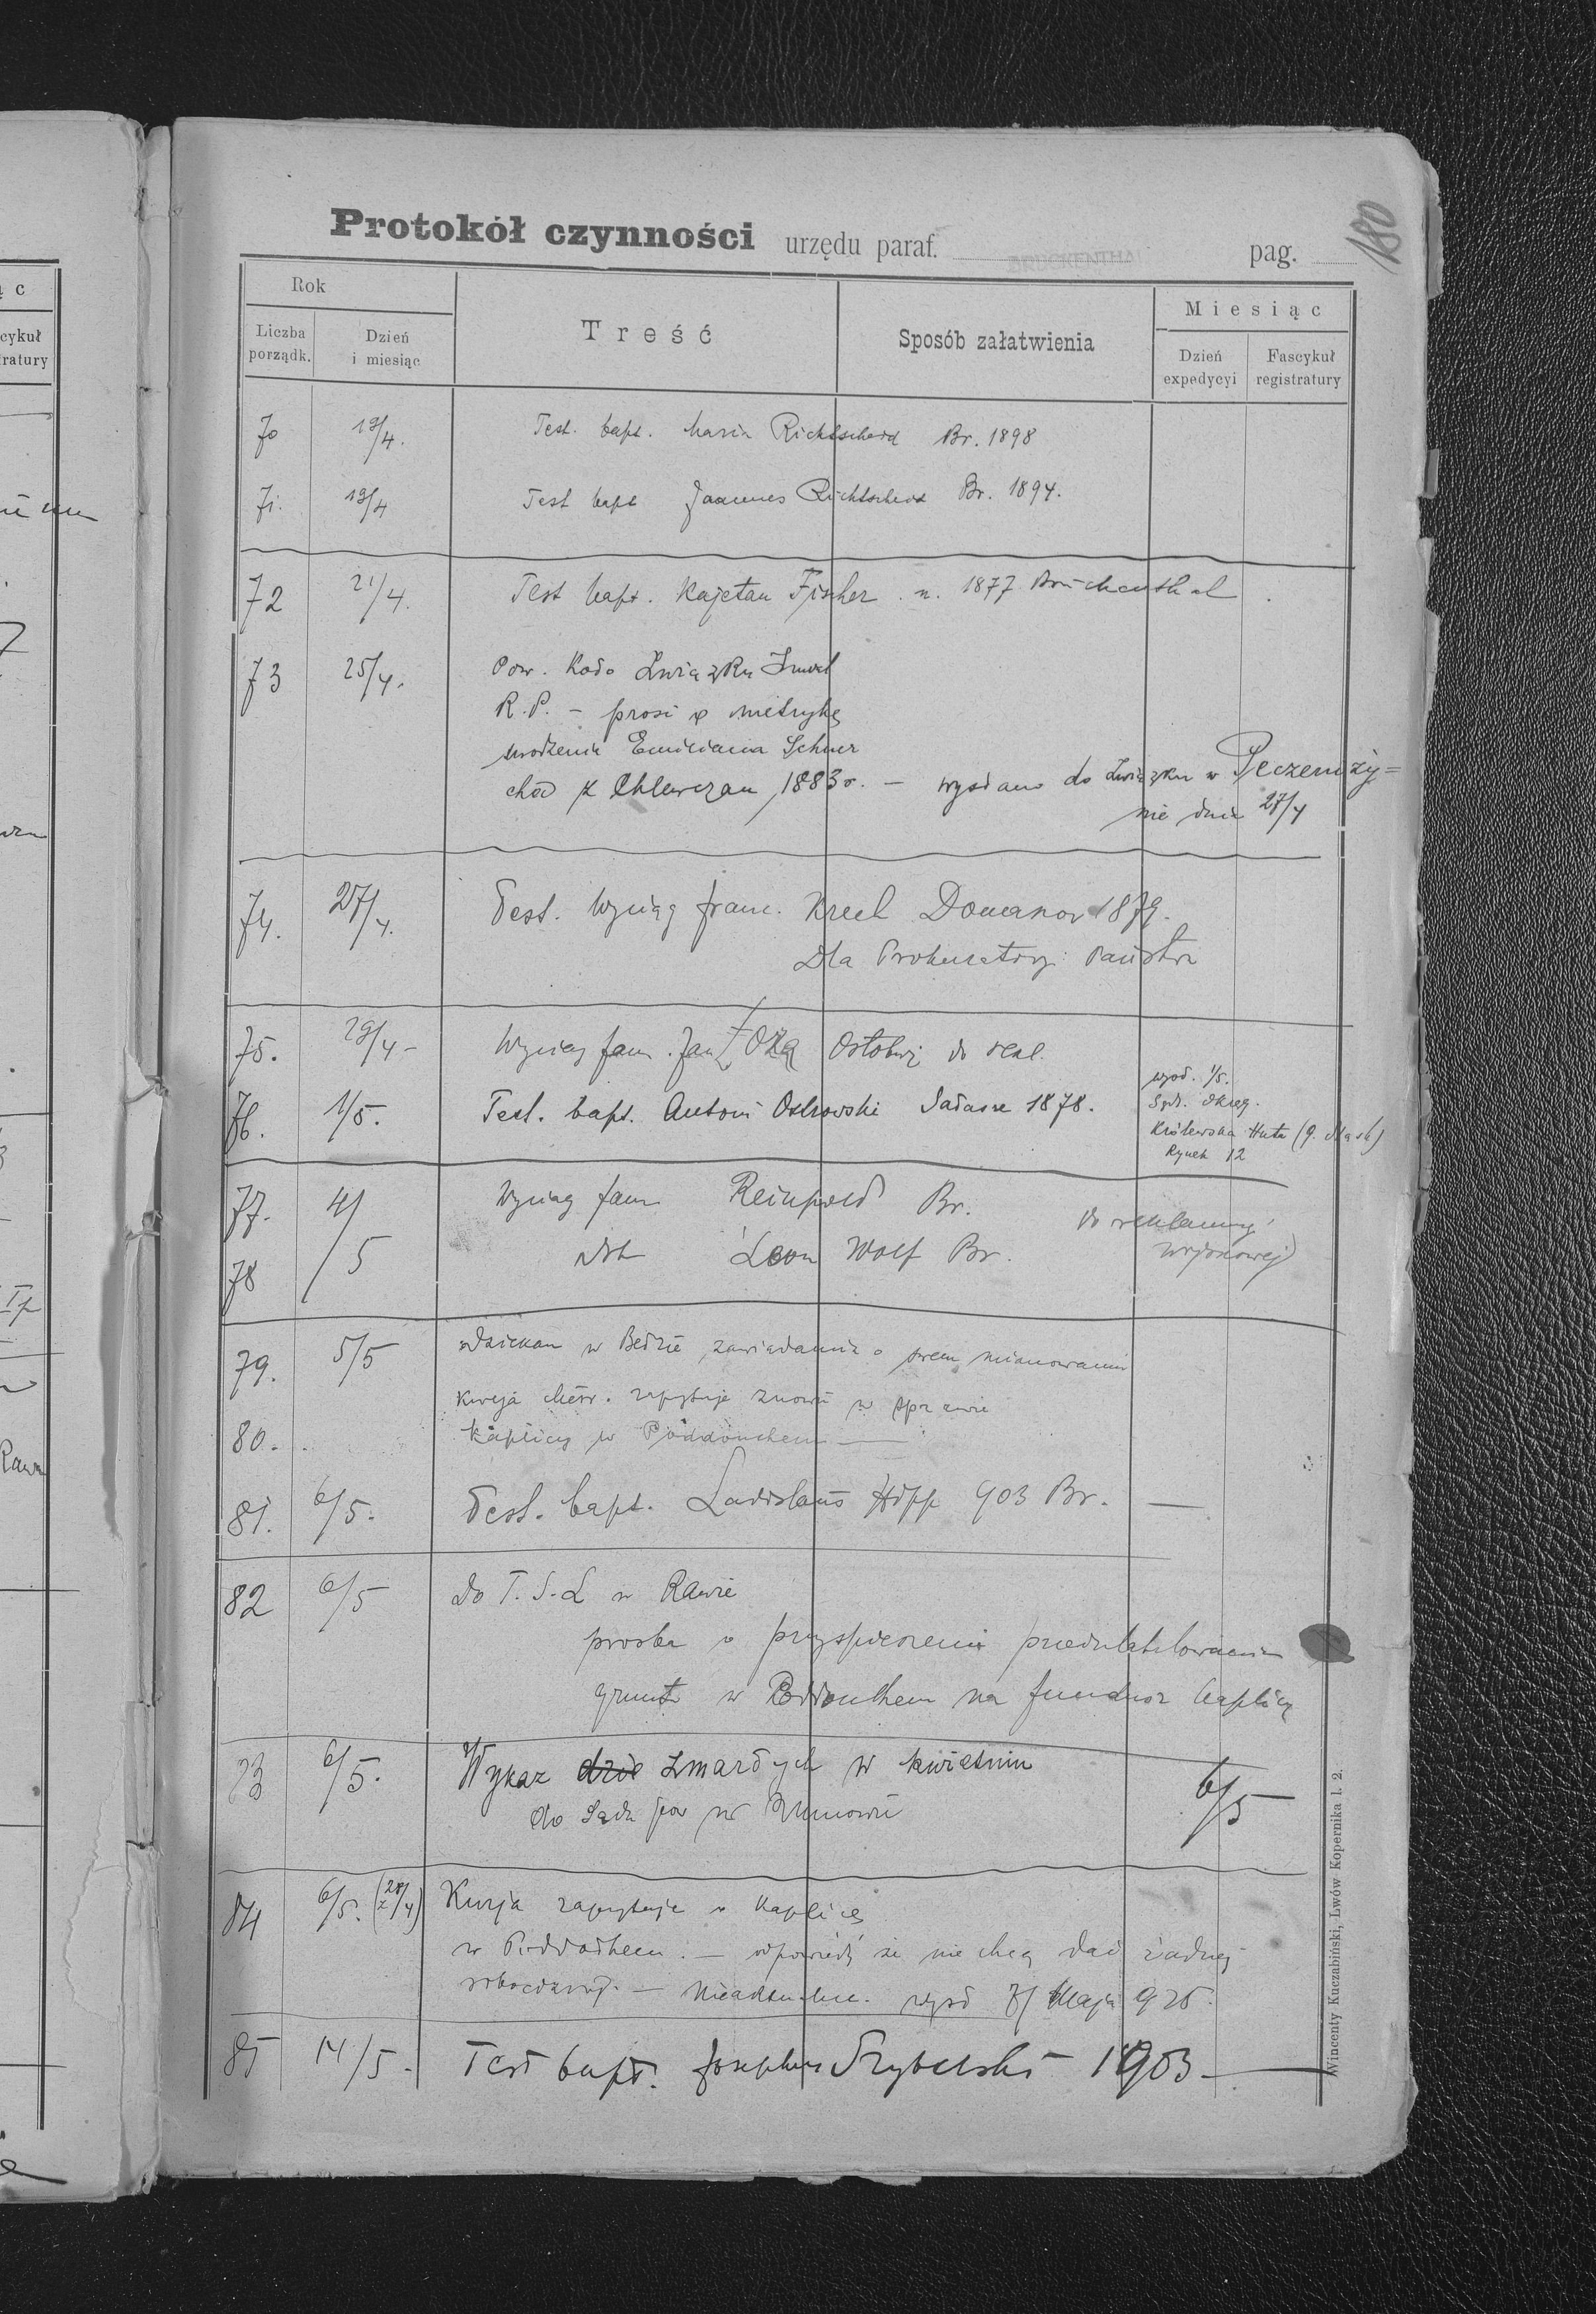 Protokół czynności urzędu paraf. BRUCKENTHAL pag. 180
Rok
Liczba porządk.
Dzień i miesiąc
Treść
Sposób załatwienia
Miesiąc
Dzień expedycyi
Fascykuł registratury
70 19/4. Test. bapt. Maria Richtscheid Br. 1898
71. 19/4 Test bapt Joannes Richtscheid Br. 1894.
72 21/4. Test bapt. Kajetan Fischer n. 1877 Bruckenthal
73 25/4. Pow. Koło Związku Inwal
R. P. – prosi o metrykę
urodzenia Emiliana Schner
choł z Chlewczan, 1883 r. – wysłano do Związku w Peczeniży=
nie dnia 27/4
74. 27/4. Test. Wyciąg fam. Krech 1879.
Dla Prokuratorji Państw
75. 29/4 - Wyciąg fam. Jan do rekl.
76. 1/5. Test. bapt. Antoni Ostrowski 1878.
wysł. 1/5.
Sąd. Okręg.
Królewska Huta (G. Śląsk)
Rynek 12
77. 4/5 Wyciąg fam Reinpold Br. do reklamacyj
78 dtt Leon Wolf Br. wojskowej
79. 5/5 Dziekan w Bełzie zawiadamia o swem mianowaniu
80. Kurja Metr. zapytuje znowu w sprawie
kaplicy w Poddoubcem —
81. 6/5. Test. bapt. Ladislaus Hipp 903 Br. —
82 6/5 Do T. S. L w Rawie
prośba o przyspieszenie
gruntu w na kaplicę
83 6/5. Wykaz dzie zmarłych w kwietniu 6/5
do Sądu pow w Uhnowie
84 6/5. (z 28/4) Kurja zapytuje o kaplicę
w – odpowiedź że nie chcą dać żadnej
– wysł 7/ Maja 925.
85 14/5 - Test bapt. Josephus Szybelski 1903 —
Wincenty Kuczabiński, Lwów Kopernika l. 2.
ą c
cykuł
ratury
Rawa